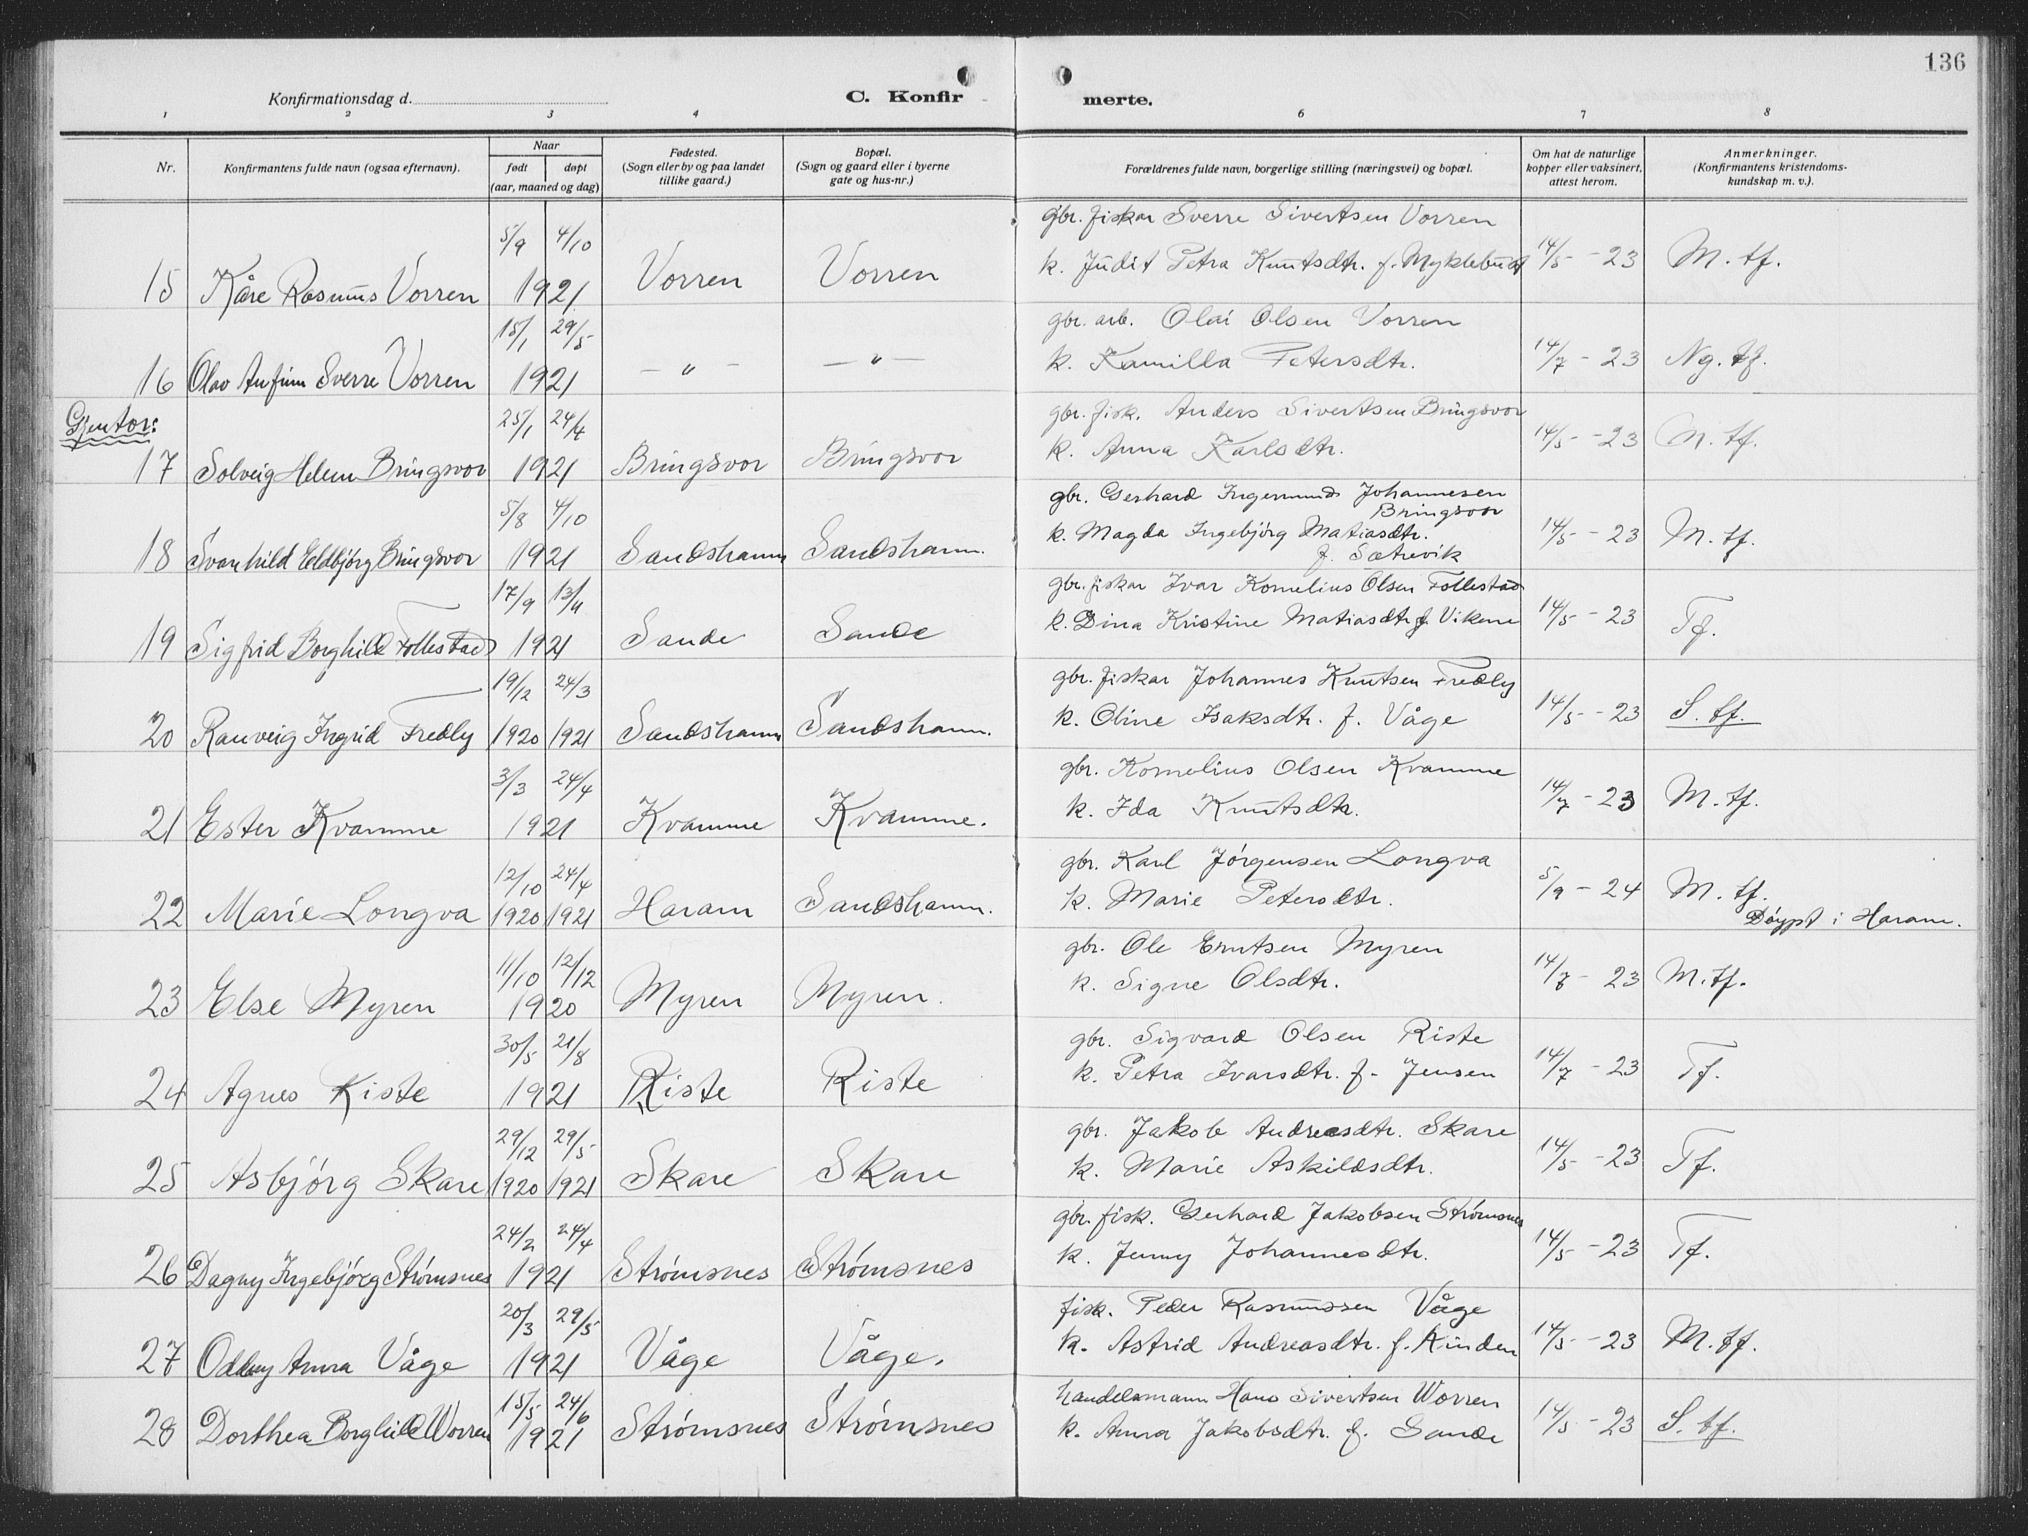 136
Konfirmationsdag d.
C. Konfirmerte.
1 2 3 4 6 7 8
Nr.
Konfirmantens fulde navn (ogsaa efternavn).
Naar
født døpt
(aar, maaned og dag)
Fødested.
(Sogn eller by og paa landet
tillike gaard.)
Bopæl.
(Sogn og gaard eller i byerne
gate og hus-nr.)
Forældrenes fulde navn, borgerlige stilling (næringsvei) og bopæl.
Om hat de naturlige
kopper eller vaksinert,
attest herom.
Anmerkninger.
(Konfirmantens kristendoms-
kundskap m. v.).
5/9 4/10 gbr. fiskar Sverre Sivertsen Vorren
15 Kåre Rasmus Vorren 1921 Vorren Vorren k. Judit Petra Knutsdtr. f. Myklebust 14/5 - 23 M. tf.
15/1 29/5 gbr. arb. Olai Olsen Vorren
16 Olav Anfinn Sverre Vorren 1921 — " — — " — k. Kamilla Petersdtr. 14/7 - 23 Ng. tf.
Gjentor:
25/1 24/4 gbr. fisk. Anders Sivertsen Bringsvor
17 Solveig Helene Bringsvor 1921 Bringsvor Bringsvor k. Anna Karlsdtr. 14/5 - 23 M. tf.
5/8 4/10 gbr. Gerhard Ingemund Johannesen
Bringsvor
18 Svanhild Eldbjørg Bringsvor 1921 Sandshamn Sandshamn. k. Magda Ingebjørg Matiasdtr. 14/5 - 23 M. tf.
f. Sætrevik
17/9 13/11 gbr. fiskar Ivar Kornelius Olsen Follestad
19 Sigfrid Borghild Follestad 1921 Sande Sande k. Dina Kristine Matiasdtr f. Vikene 14/5 - 23 Tf.
19/12 24/3 gbr. fiskar Johannes Knutsen Fredly
20 Ranveig Ingrid Fredly 1920 1921 Sandshamn Sandshamn. k. Oline Isaksdtr. f. Våge 14/5 - 23 S. tf.
3/3 24/4 gbr. Kornelius Olsen Kvamme
21 Ester Kvamme 1921 Kvamme Kvamme. k. Ida Knutsdtr. 14/7 - 23 M. tf.
12/10 24/4 gbr. Karl Jørgensen Longva
22 Marie Longva 1920 1921 Haram Sandshamn. k. Marie Petersdtr. 5/9 - 24 M. tf.
Døypt i Haram.
11/10 12/12 gbr. Ole Knutsen Myren
23 Else Myren 1920 Myren Myren. k. Signe Olsdtr. 14/7 - 23 M. tf.
30/5 21/8 gbr. Sigvard Olsen Riste
24 Agnes Riste 1921 Riste Riste k. Petra Ivarsdtr. f. Jensen 14/7 - 23 Tf.
29/12 29/5 gbr. Jakob Andreasdtr. Skare
25 Asbjørg Skare 1920 1921 Skare Skare k. Marie Askildsdtr. 14/5 - 23 Tf.
24/2 24/4 gbr. fisk. Gerhard Jakobsen Strømsnes
26 Dagny Ingebjørg Strømsnes 1921 Strømsnes Strømsnes k. Jenny Johannesdtr. 14/5 - 23 Tf.
20/3 29/5 fisk. Peder Rasmussen Våge
27 Oddny Anna Våge 1921 Våge Våge. k. Astrid Andreasdtr. f. Kinden 14/5 - 23 M. tf.
15/5 24/6 handelsmann Hans Sivertsen Worren
28 Dorthea Borghild Worren 1921 Strømsnes Strømsnes k. Anna Jakobsdtr. f. Sande 14/5 - 23 S. tf.